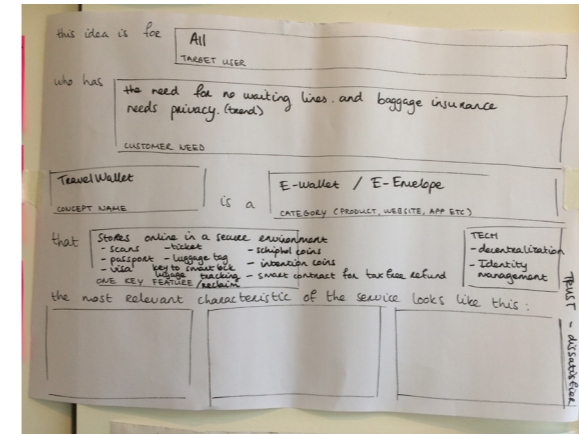 this idea is for
All
TARGET USER
who has
the need for no waiting lines. and baggage insurance
needs privacy. (trend)
CUSTOMER NEED
TravelWallet
CONCEPT NAME
is a
E-wallet / E-Envelope
CATEGORY (PRODUCT, WEBSITE, APP ETC)
that
Stores online in a secure environment
- scans - ticket - schiphol coins
- passport - luggage tag - intention coins
- visa key to smart lock
luggage tracking - smart contract for tax free refund
ONE KEY FEATURE /reclaim
TECH
- decentralization
- Identity
management
TRUST - dissatisfier
the most relevant characteristic of the service looks like this :